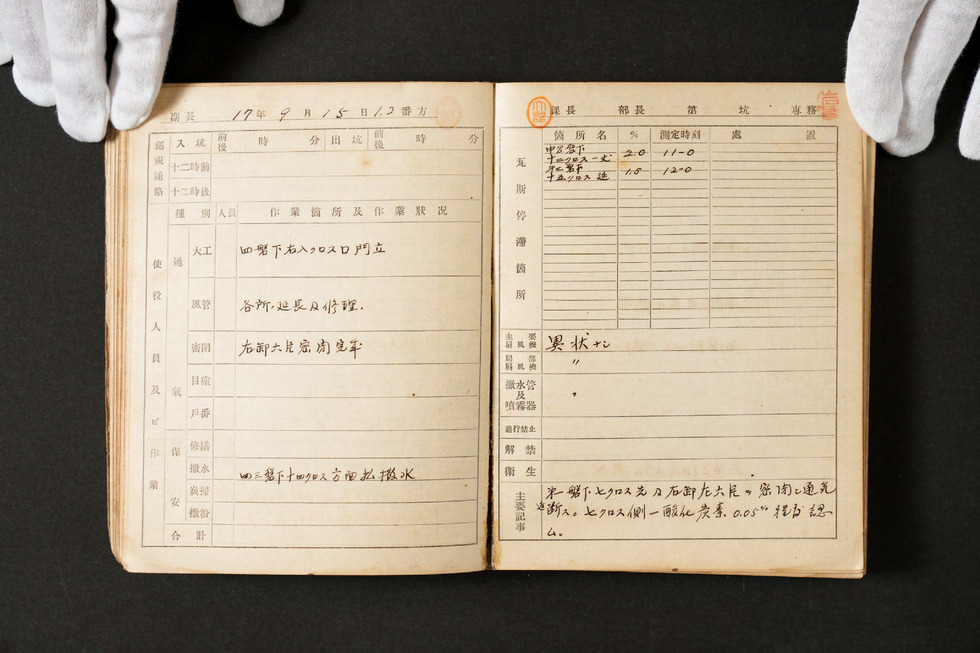 副長 17年9月15日1.2番方
巡視通路
入坑 前後 時 分 出坑 前後 時 分
十二時前
十二時後
使役人員及ビ作業
種別 人員 作業箇所及作業状況
通氣
大工 四盤下右入クロス口門立
風管 各所ノ延長及修理.
密閉 右卸六片密閉完牟
目塗
戸番
保安
修繕
撒水 四三盤下十四クロス方面払撒水
炭掃
撒粉
合計
課長 部長 第 坑 専務
瓦斯停滞箇所
箇所名 % 測定時刻 處置
盤下
十二クロス 一丈 2.0 11-0
盤下
十五クロス 延 1.5 12-0
主要扇風機 異状ナシ
局部扇風機 〃
撒水管及噴霧器 〃
通行禁止
解禁
衛生
主要記事
第一盤下七クロス先及右卸左六片ヲ密閉シ通気
遮断ス。七クロス側一酸化炭素0.05%程度認
ム。